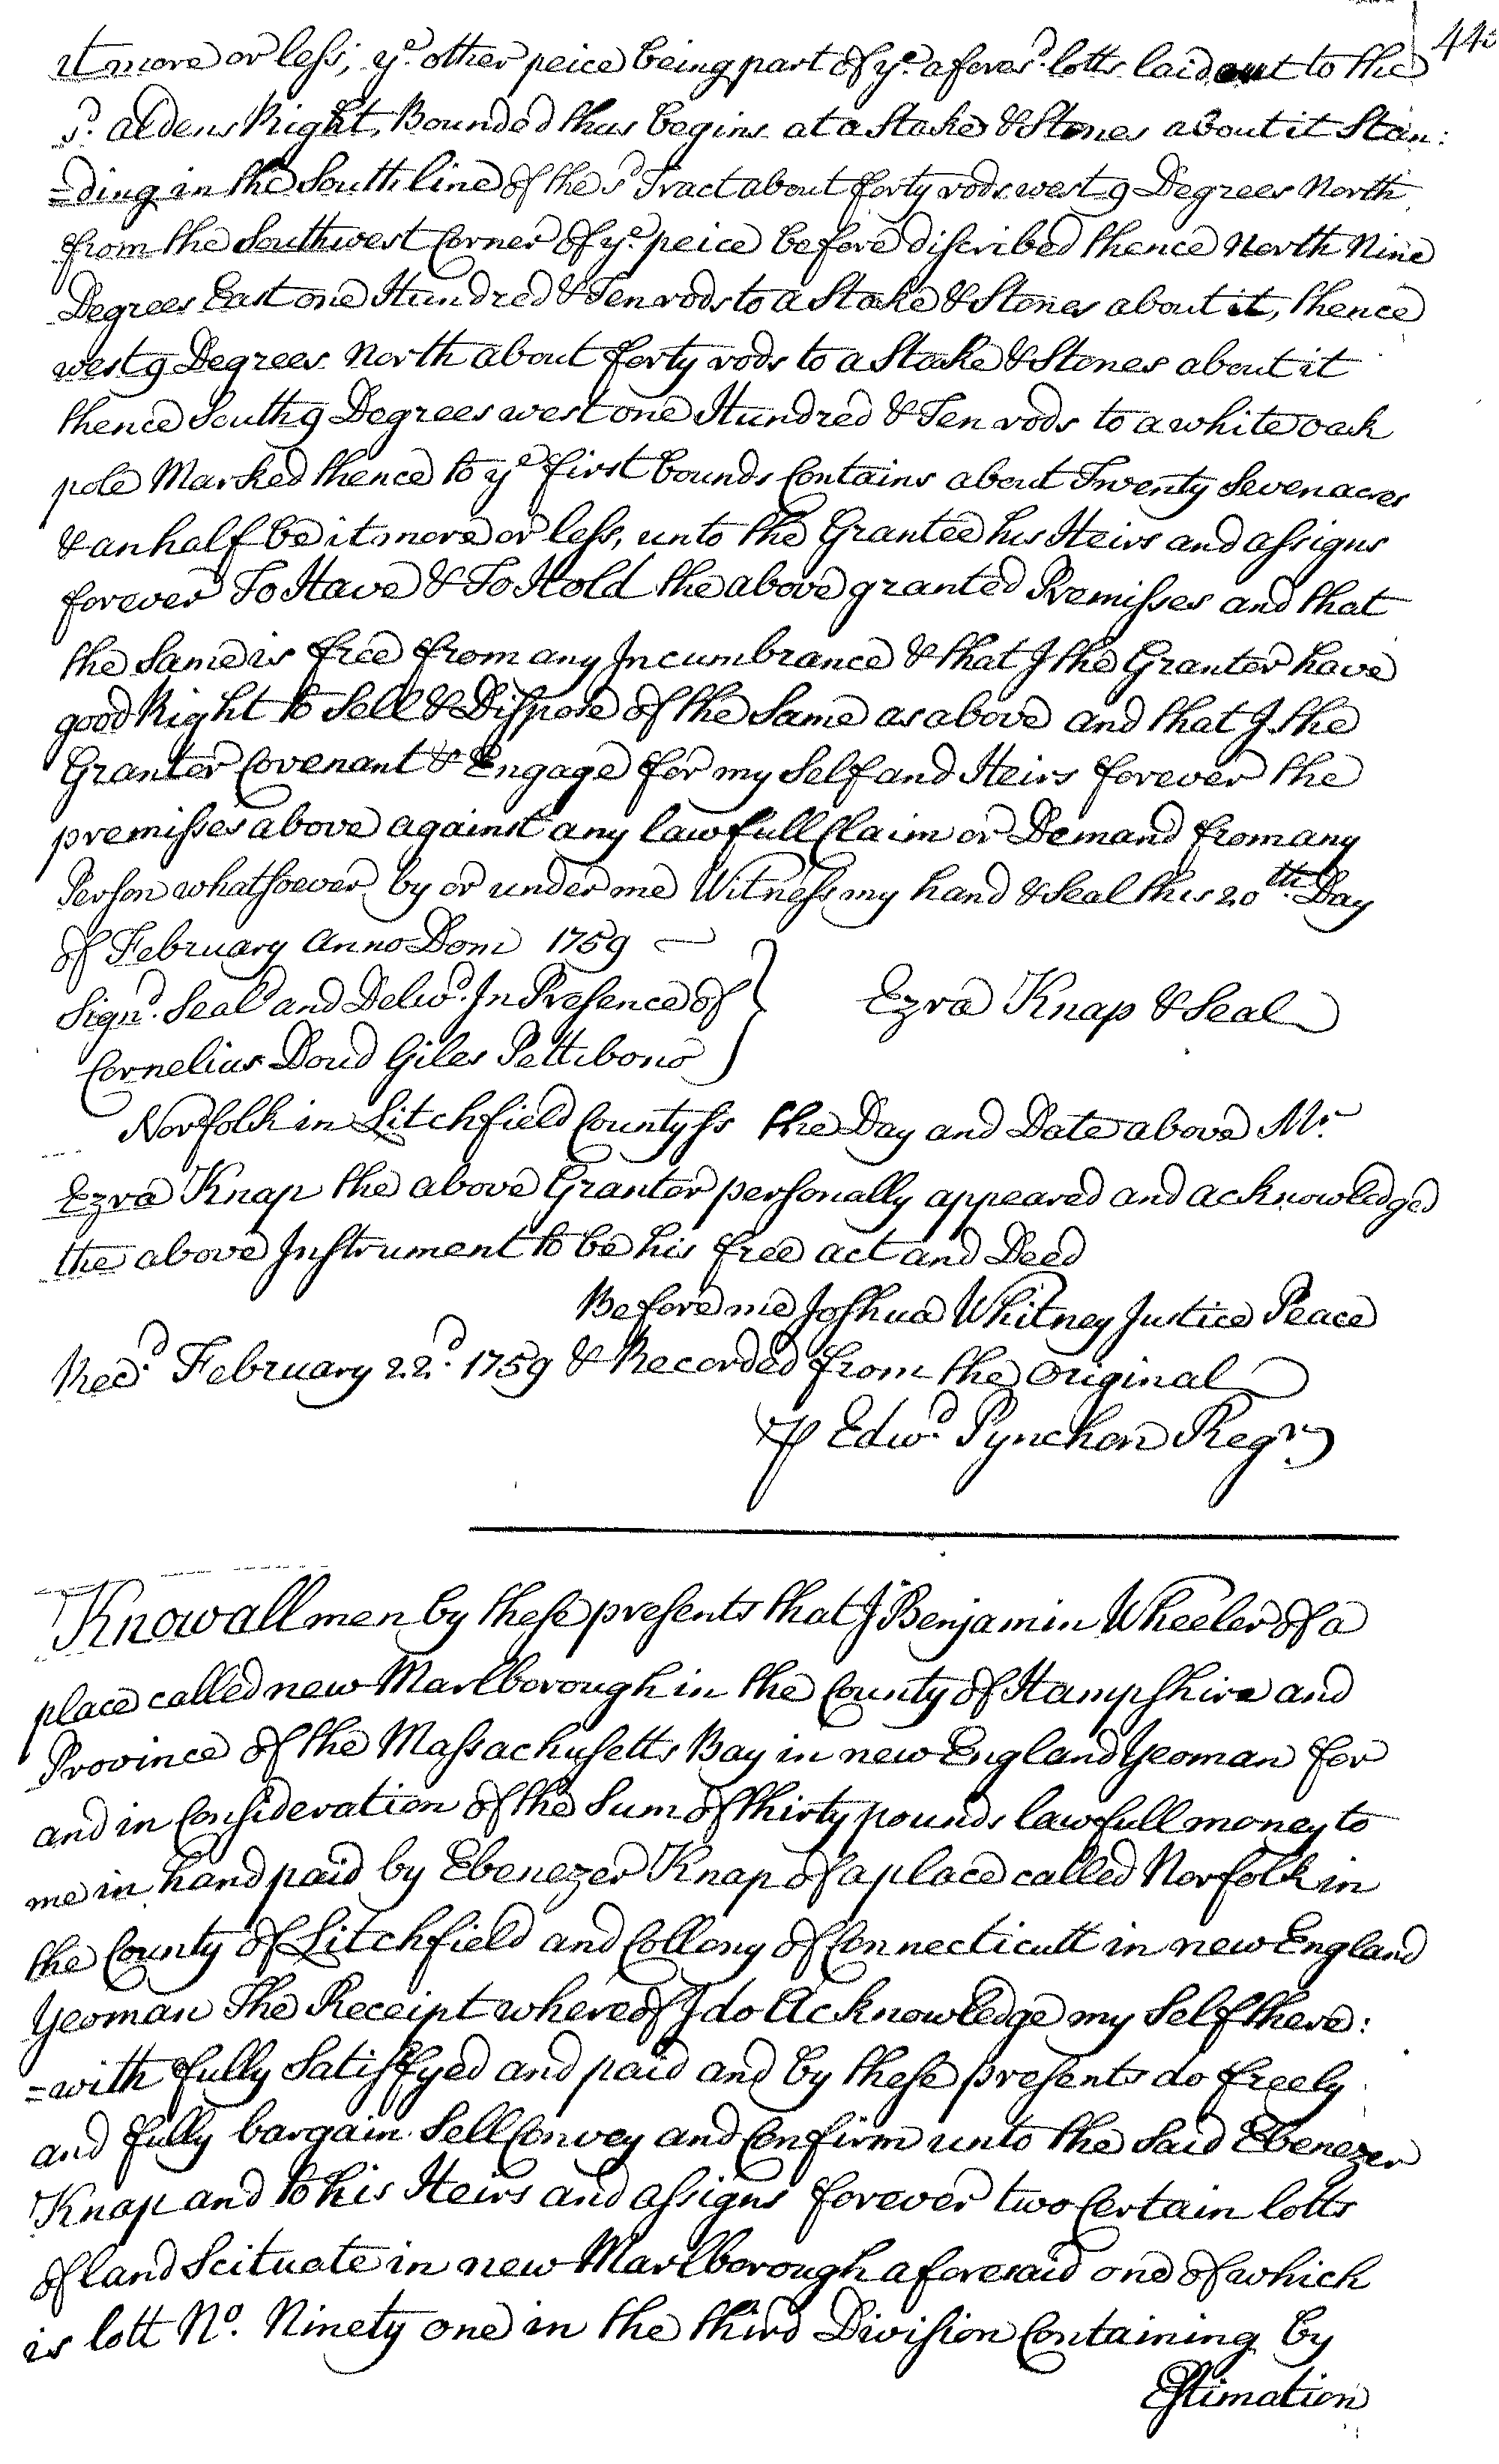 it more or less, ye. other peice being part of ye. afores.d lotts laid out to the
sd. aldens Right, Bounded thus begins at a Stake & Stones about it Stan:
=ding in the South line of the sd Tract about forty rods west 9 Degrees North
from the Southwest Corner of ye. peice before discribed thence North Nine
Degrees East one Hundred & Ten rods to a Stake & Stones about it, thence
west 9 Degrees North about forty rods to a Stake & Stones about it
thence South 9 Degrees west one Hundred & Ten rods to a white oak
pole Marked thence to ye first bounds Contains about Twenty Seven acres
& an half be it more or less, unto the Grantee his Heirs and assigns
forever To Have & To Hold the above granted Premisses and that
the Same is free from any Incumbrance & that I the Granter have
good Right to Sell & Dispose of the Same as above and that I the
Granter Covenant & Engage for my Self and Heirs forever the
premisses above against any lawfull Claim or Demand from any
Person whatsoever by or under me Witness my hand & Seal this 20th. Day
of February Anno Dom 1759
Signd. Seald and Delivd. In Presence of } Ezra Knap & Seal
Cornelius Doud Giles Pettibone
Norfolk in Litchfield County ss the Day and Date above Mr.
Ezra Knap the above Grantor personally appeared and acknowledged
the above Instrument to be his free act and Deed
Before me Joshua Whitney Justice Peace
Recd. February 22d. 1759 & Recorded from the Original
⅌ Edwd. Pynchon Regr.
Know all men by these presents that I Benjamin Wheeler of a
place called new Marlborough in the County of Hampshire and
Province of the Massachusetts Bay in new England Yeoman for
and in Consideration of the Sum of thirty pounds lawfull money to
me in hand paid by Ebenezer Knap of a place called Norfolk in
the County of Litchfield and Collony of Connecticutt in new England
Yeoman The Receipt whereof I do Acknowledge my Self there:
=with fully Satisfyed and paid and by these presents do freely
and fully bargain Sell Convey and Confirm unto the Said Ebenezer
Knap and to his Heirs and assigns forever two Certain lotts
of land Scituate in new Marlborough aforesaid one of which
is lott No. Ninety one in the third Division Containing by
Estimation